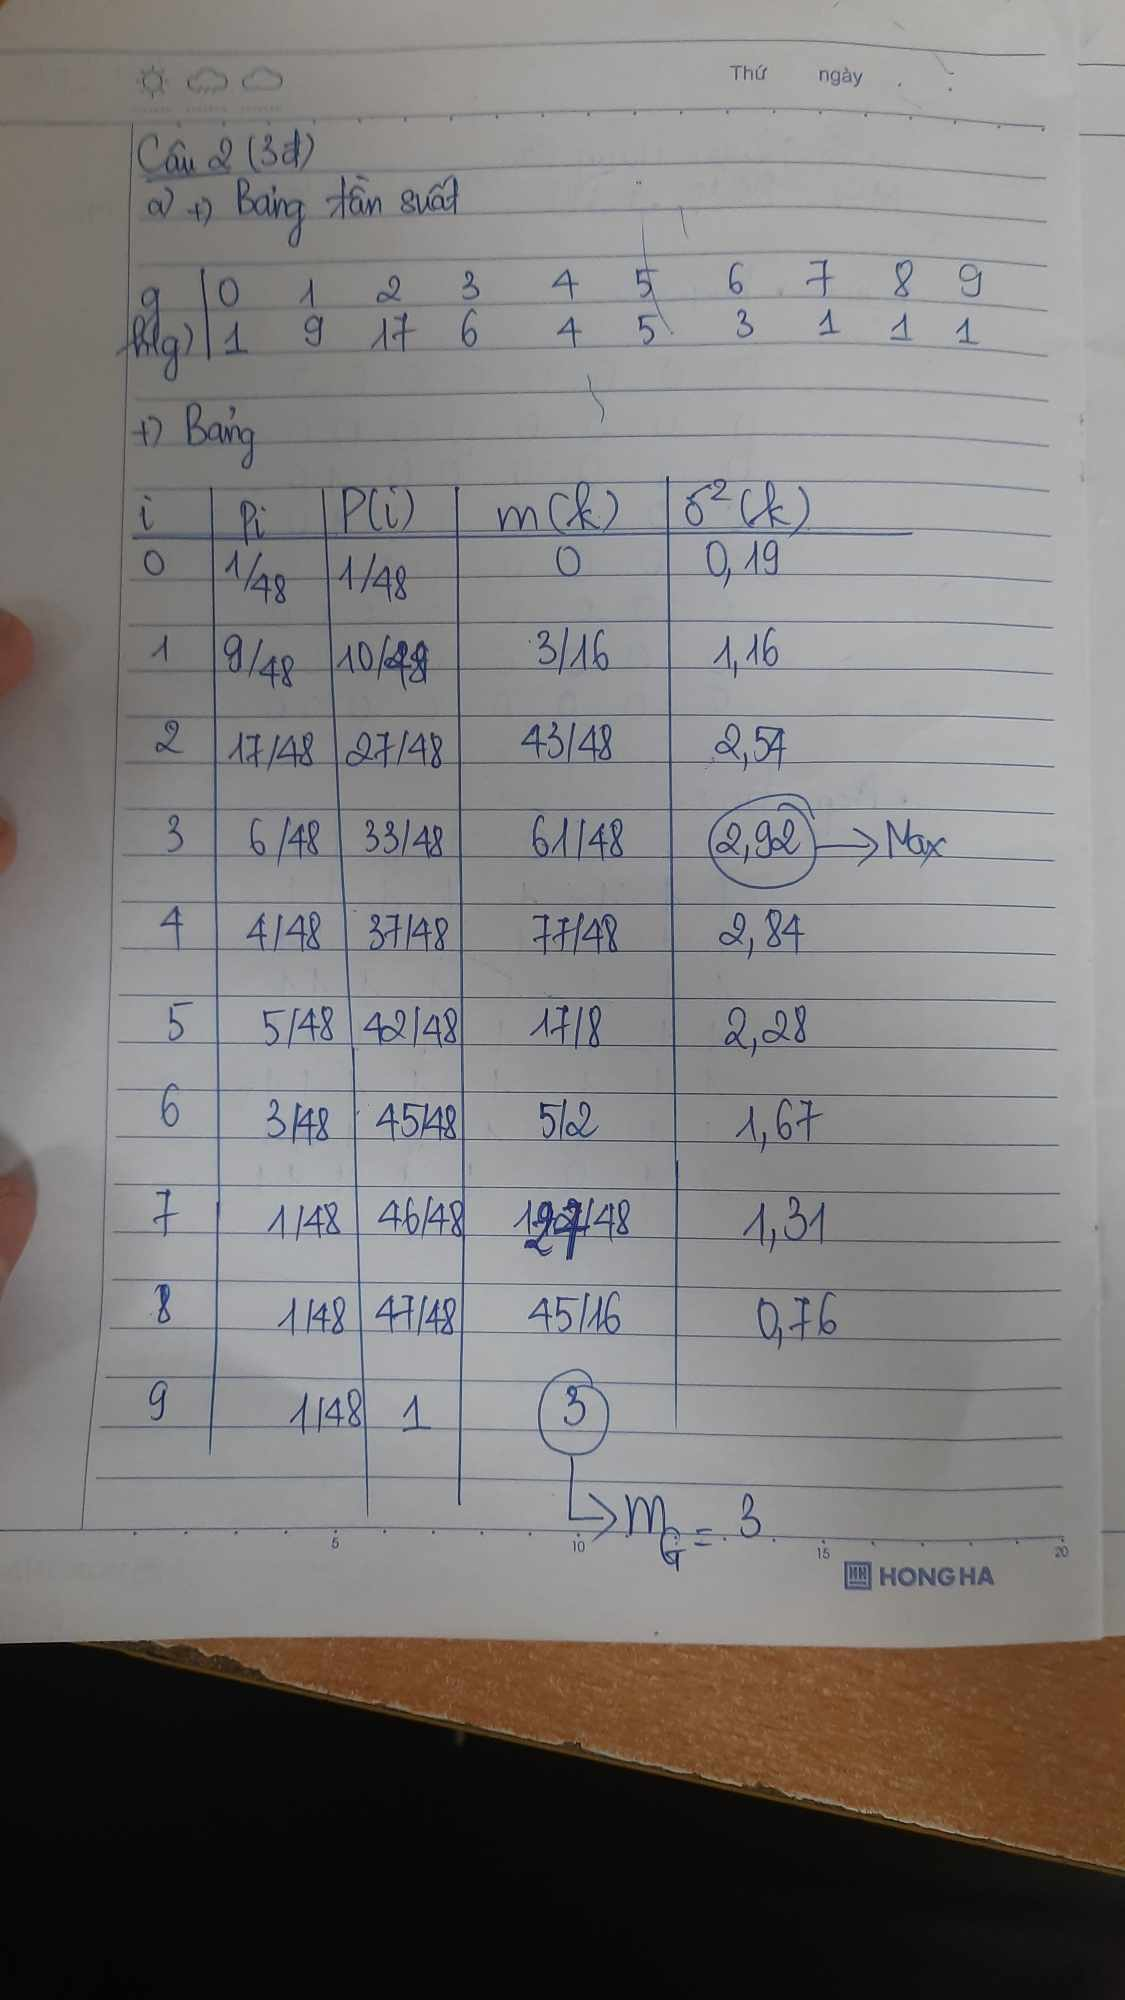 Thứ ngày
Câu 2 (3đ)
a) +) Bảng tần suất
g 0 1 2 3 4 5 6 7 8 9
h(g) 1 9 17 6 4 5 3 1 1 1
+) Bảng
i Pi P(i) m(k) δ²(k)
0 1/48 1/48 0 0,19
1 9/48 10/48 3/16 1,16
2 17/48 27/48 43/48 2,57
3 6/48 33/48 61/48 2,92 → Max
4 4/48 37/48 77/48 2,84
5 5/48 42/48 17/8 2,28
6 3/48 45/48 5/2 1,67
7 1/48 46/48 127/48 1,31
8 1/48 47/48 45/16 0,76
9 1/48 1 3
→ mG = 3
5 10 15 20
HH HONG HA